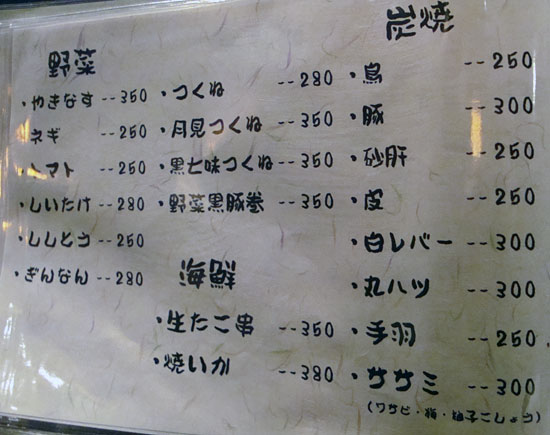 炭焼
・鳥 --250
・豚 --300
・砂肝 --250
・皮 --250
・白レバー --300
・丸ハツ --300
・手羽 --250
・ササミ --300
(ワサビ・梅・柚子こしょう)
・つくね --280
・月見つくね --350
・黒七味つくね --350
・野菜黒豚巻 --350
海鮮
・生たこ串 --350
・焼いか --380
野菜
・やきなす --350
ネギ --250
トマト --250
・しいたけ --280
・ししとう --250
・ぎんなん --280